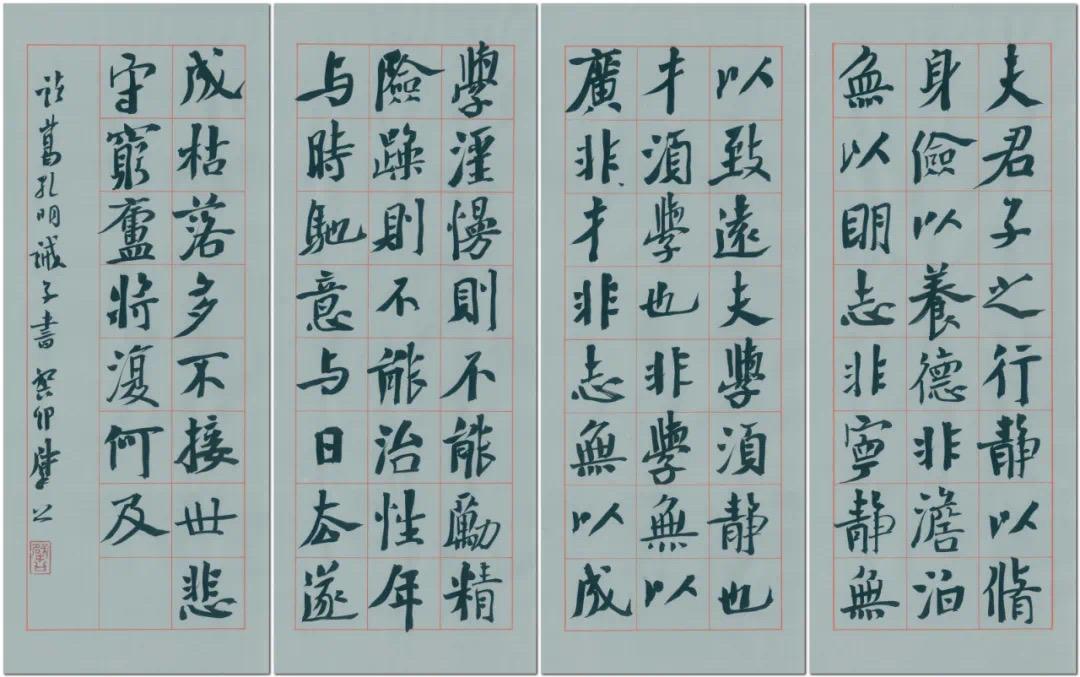 夫君子之行静以脩
身儉以養德非澹泊
無以眀志非寧静無
以致遠夫學須静也
才須學也非學無以
廣非才非志無以成
學淫慢則不能勵精
險躁則不能治性年
与時馳意与日去遂
成枯落多不接世悲
守窮廬將復何及
諸葛孔明誡子書 癸卯